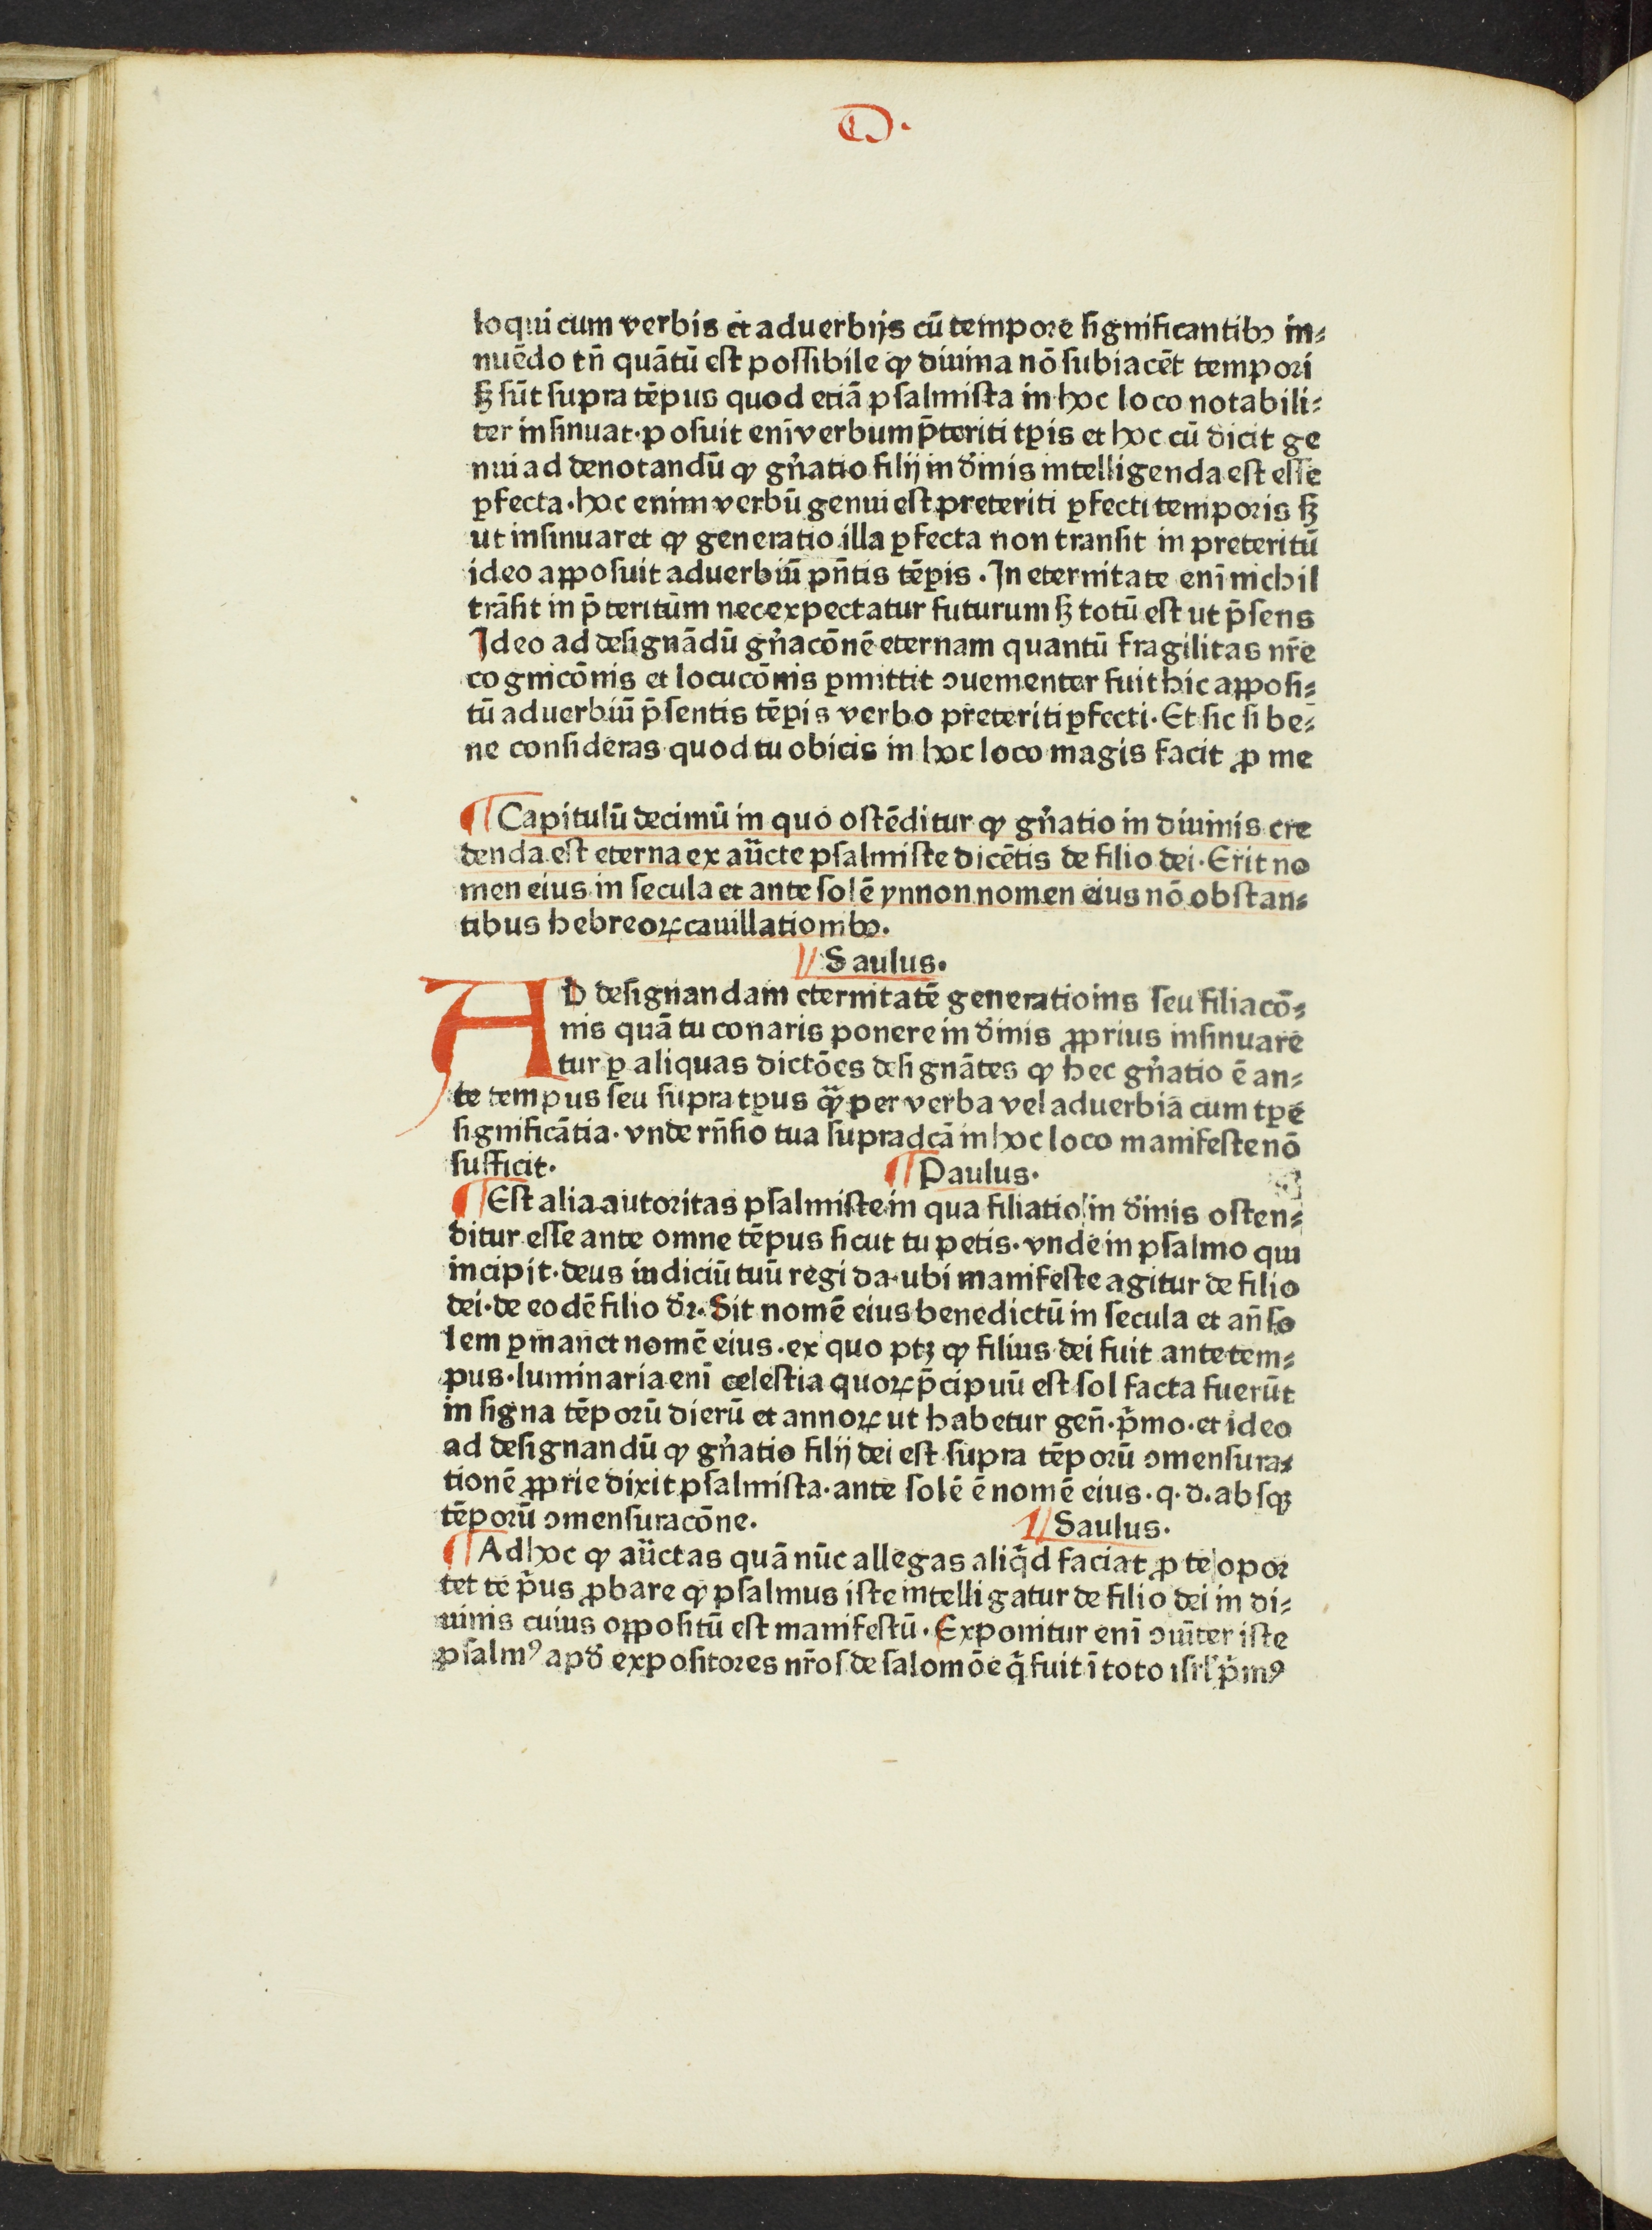 D.
loqui cum verbis et aduerbijs cū tempore significantibꝫ in⸗
nuēdo tn̄ quātū est possibile ꝙ diuina nō subiacēt tempori
sꝫ sūt supra tēpus quod etiā psalmista in hoc loco notabili⸗
ter insinuat·posuit enī verbum p̄teriti tꝑis et hoc cū dicit ge
nui ad denotandū ꝙ gn̄atio filij in diīnis intelligenda est esse
ꝑfecta·hoc enim verbū genui est preteriti ꝑfecti temporis sꝫ
ut insinuaret ꝙ generatio illa ꝑfecta non transit in preteritū
ideo apposuit aduerbiū pn̄tis tēꝑis. In eternitate enī nichil
trāsit in p̄teritum nec expectatur futurum sꝫ totū est ut p̄sens
Ideo ad designādū gn̄acōnē eternam quantū fragilitas nr̄e
cognicōnis et locucōnis ꝑmittit ↄuementer fuit hic apposi⸗
tū aduerbiū p̄sentis tēꝑis verbo preteriti ꝑfecti·Et sic si be⸗
ne consideras quod tu obicis in hoc loco magis facit ꝓ me
¶Capitulū decimū in quo ostēditur ꝙ gn̄atio in diuinis cre
denda est eterna ex aūcte psalmiste dicētis de filio dei·Erit no
men eius in secula et ante solē ynnon nomen eius nō obstan⸗
tibus hebreoꝝ cauillationibꝫ.
¶Saulus.
AD designandam eternitatē generatioins seu filiacō⸗
nis quā tu conaris ponere in diīnis ꝓprius insinuare
tur ꝑ aliquas dictōes designātes ꝙ hec gn̄atio ē an⸗
te tempus seu supra tꝑus qᷓꝫ per verba vel aduerbia cum tꝑe
significātia·vnde rn̄sio tua supradcā in hoc loco manifeste nō
sufficit. ¶Paulus.
¶Est alia autoritas psalmiste in qua filiatio in diīnis osten⸗
ditur esse ante omne tēpus sicut tu petis·vnde in psalmo qui
incipit·deus iudiciū tuū regi da·ubi manifeste agitur de filio
dei·de eodē filio dr̄.Sit nomē eius benedictū in secula et an̄ so
lem ꝑmanet nomē eius·ex quo ptꝫ ꝙ filius dei fuit ante tem⸗
pus·luminaria enī celestia quoꝝ p̄cipuū est sol facta fuerūt
in signa tēporū dierū et annoꝝ ut habetur gen̄·p̄mo·et ideo
ad designandū ꝙ gn̄atio filij dei est supra tēporū ↄmensura⸗
tionē ꝓprie dixit psalmista·ante solē ē nomē eius·q·d.absqꝫ
tēporū ↄmensuracōne. ¶Saulus.
¶Ad hoc ꝙ aūctas quā nūc allegas aliq̄d faciat ꝓ te opor
tet te p̄us ꝓbare ꝙ psalmus iste intelligatur de filio dei in di⸗
uinis cuius oppositū est manifestū·Exponitur enī ↄiūter iste
psalmꝰ apd̄ expositores nr̄os de salomōe q̄ fuit ī toto isrl̄ p̄mꝰ